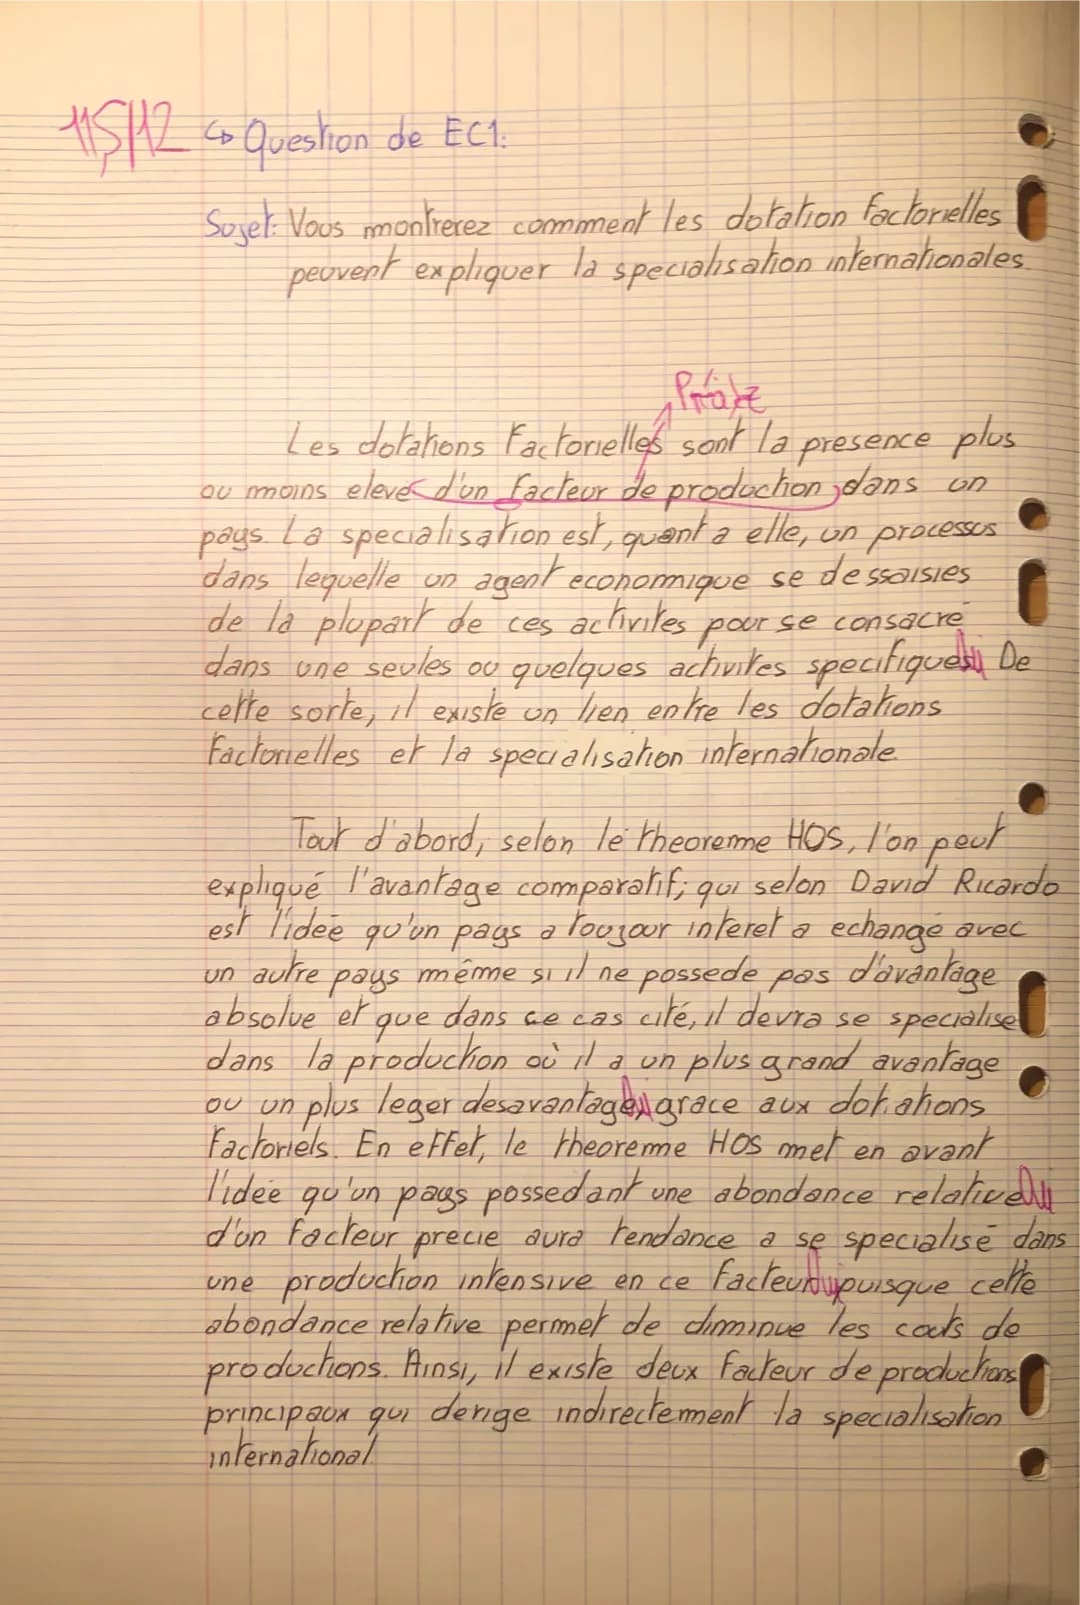 11,5/12 ↳ Question de EC1:
Sujet: Vous montrerez comment les dotation factorielles
peuvent expliquer la specialisation internationales.
Les dotations factorielles sont la presence plus
ou moins elevé d'un facteur de production, dans un
pays. La specialisation est, quant a elle, un processus
dans lequelle un agent economique se dessaisies
de la plupart de ces activites pour se consacré
dans une seules ou quelques activites specifiques. Oui De
cette sorte, il existe un lien entre les dotations
factorielles et la specialisation internationale.
Tout d'abord, selon le theoreme HOS, l'on peut
expliqué l'avantage comparatif; qui selon David Ricardo
est l'idée qu'un pays a toujour interet a echangé avec
un autre pays même si il ne possede pas d'avantage
absolue et que dans ce cas cité, il devra se specialise
dans la production où il a un plus grand avantage
ou un plus leger desavantage, Oui grace aux dotations
factoriels. En effet, le theoreme HOS met en avant
l'idée qu'un pays possedant une abondance relative Oui
d'un facteur precie aura tendance a se specialisé dans
une production intensive en ce facteur Oui puisque cette
abondance relative permet de diminue les couts de
productions. Ainsi, il existe deux facteur de productions
principaux qui derige indirectement la specialisation
international.